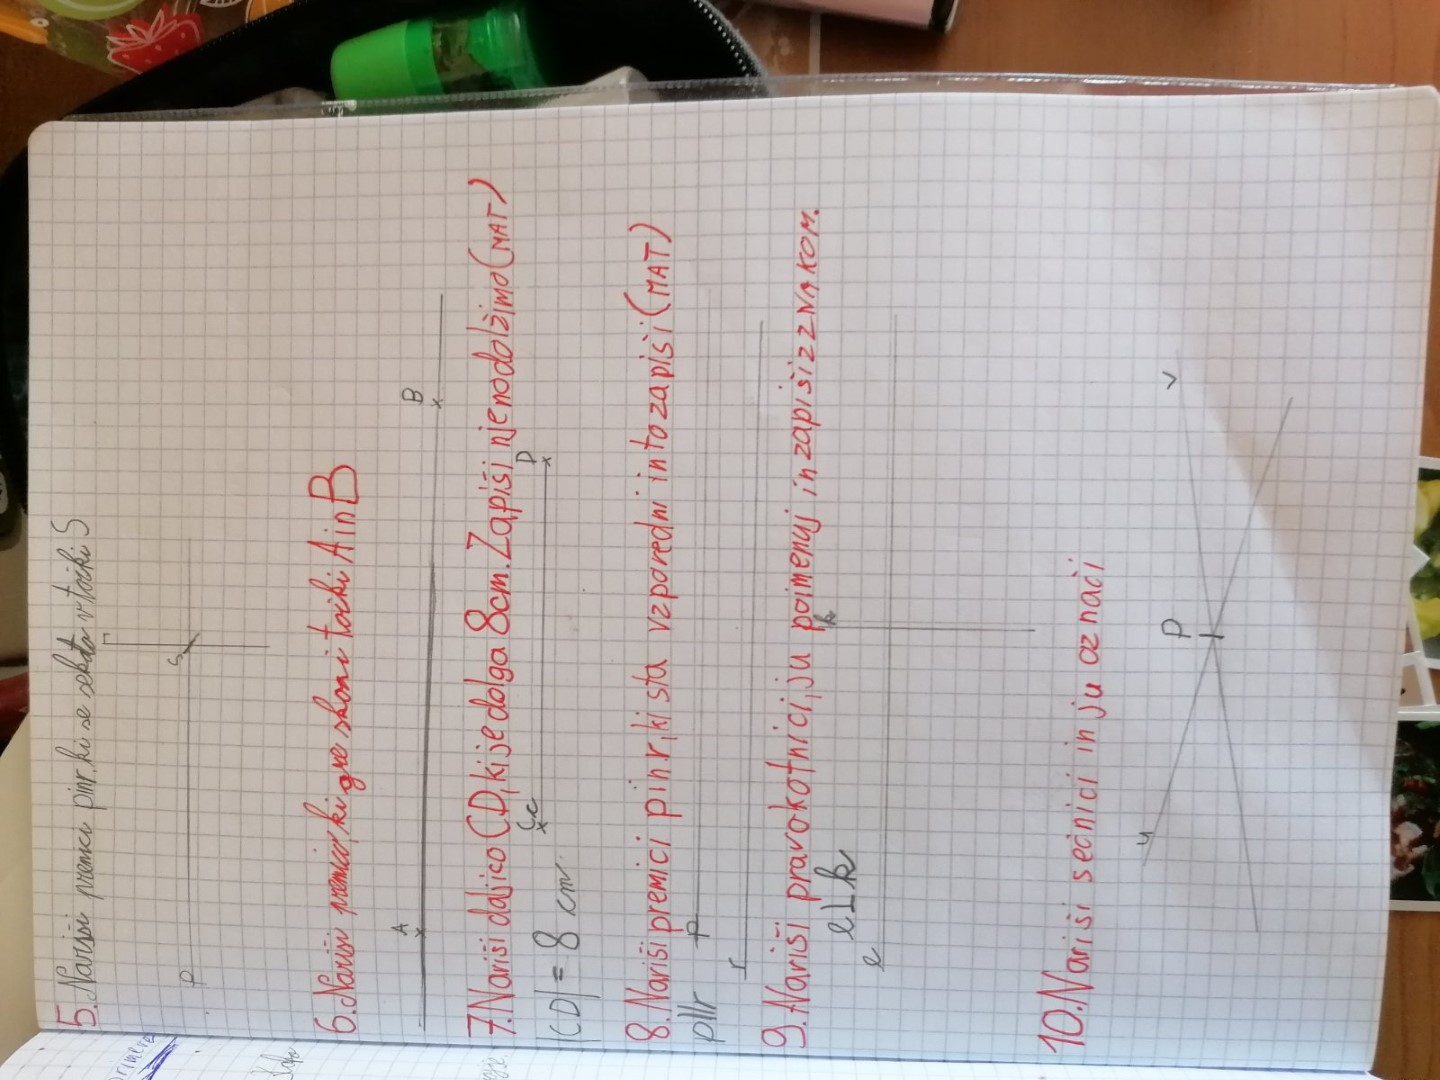 5. Nariši premici p in r, ki se sekata v točki S
r
S
p
6. Nariši premico, ki gre skoni točki A in B
A
B
7. Nariši daljico CD, ki je dolga 8cm. Zapiši njeno dolžimo (MAT)
C
D
|CD| = 8 cm
8. Nariši premici p in r, ki sta vzporedni in to zapiši (MAT)
p||r
p
r
9. Nariši pravokotnici, ju poimenuj in zapiši z ZNAKOM.
k
e⊥k
e
10. Nariši sečnici in ju označi
P
v
u
primere